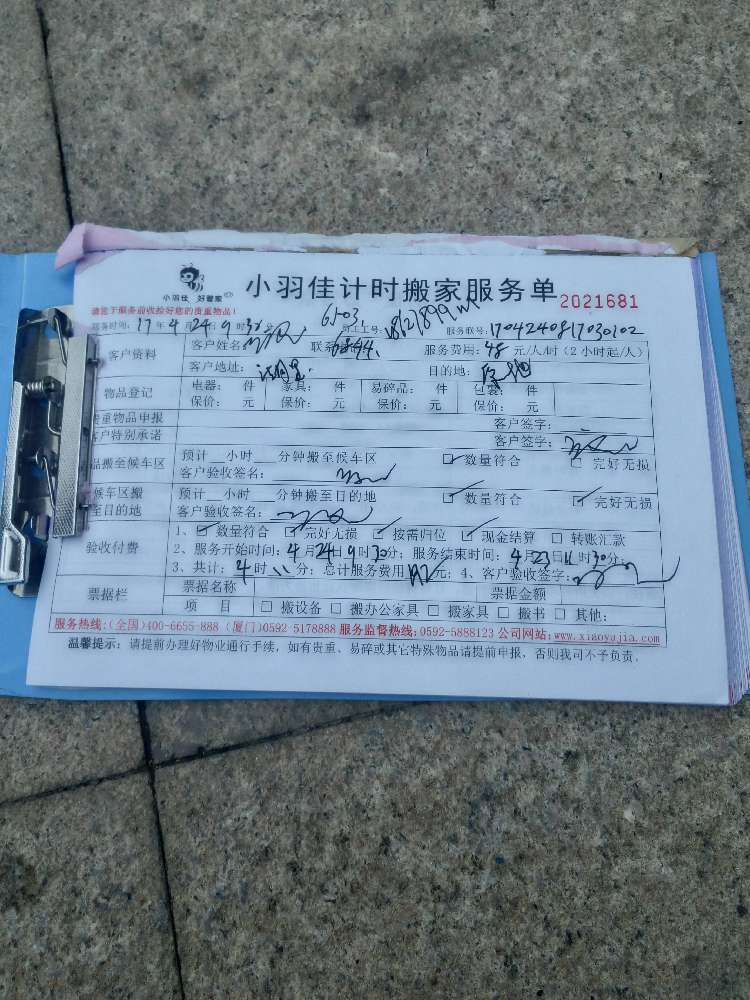 小羽佳 好管家
小羽佳计时搬家服务单 2021681
请您于服务前收捡好您的贵重物品!
服务时间: 17 年 4 月 24 日 9 时 30 员工工号: 6J03 服务联号: 170424081703010 2
客户资料 客户姓名: 联系 服务费用: 48 元/人/时 (2小时起/人)
客户地址: 目的地:
物品登记 电器: 件 家具: 件 易碎品: 件 包裹: 件
保价: 元 保价: 元 保价: 元 保价: 元
贵重物品申报 客户签字:
客户特别承诺 客户签字:
品搬至候车区 预计__小时___分钟搬至候车区 ☑数量符合 □ 完好无损
客户验收签名:
候车区搬 预计__小时___分钟搬至目的地 ☑数量符合 ☑ 完好无损
至目的地 客户验收签名:
验收付费 1、☑ 数量符合 ☑ 完好无损 ☑ 按需归位 ☑ 现金结算 □ 转账汇款
2、服务开始时间: 4 月 24 日 9 时 30 分; 服务结束时间: 4 月 23 日 11 时 30 分;
3、共计: 4 时 分; 总计服务费用 192 元; 4、客户验收签字:
票据栏 票据名称 票据金额
项 目 □ 搬设备 □ 搬办公家具 □ 搬家具 □ 搬书 □ 其他:
服务热线:(全国)400-6655-888 (厦门)0592-5178888 服务监督热线:0592-5888123 公司网站:www.xiaoyujia.com
温馨提示: 请提前办理好物业通行手续, 如有贵重、易碎或其它特殊物品请提前申报, 否则我司不予负责.